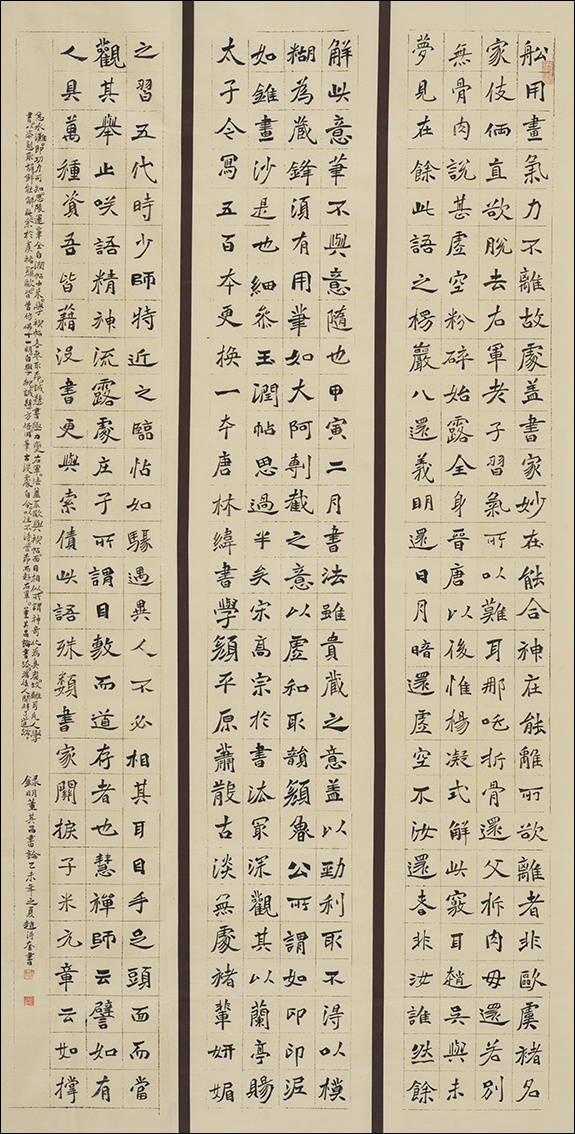 舩用畫氣力不離故處盖書家妙在能合神在能離所欲離者非歐虞褚名
家伎倆直欲脫去右軍老子習氣所以難耳那吒拆骨還父拆肉母還若別
無骨肉說甚虛空粉碎始露全身晉唐以後惟楊凝式解此竅耳趙吳興未
夢見在餘此語之楞嚴八還義明還日月暗還虛空不汝還者非汝誰然餘
解此意筆不與意隨也甲寅二月書法雖貴藏之意盖以勁利取不得以模
糊為藏鋒須有用筆如大阿剸截之意以虛和取韻顏魯公所謂如印印泥
如錐畫沙是也細參玉潤帖思過半矣宋高宗於書法冣深觀其以蘭亭賜
太子令寫五百本更換一本唐林緯書學顏平原蕭散古淡無處褚輩妍媚
之習五代時少師特近之臨帖如驟遇異人不必相其耳目手足頭面而當
觀其舉止咲語精神流露處莊子所謂目擊而道存者也慧禪師云譬如有
人具萬種資吾皆藉沒書更與索債此語殊類書家關捩子米元章云如撑
錄明董其昌書論己未年之夏趙